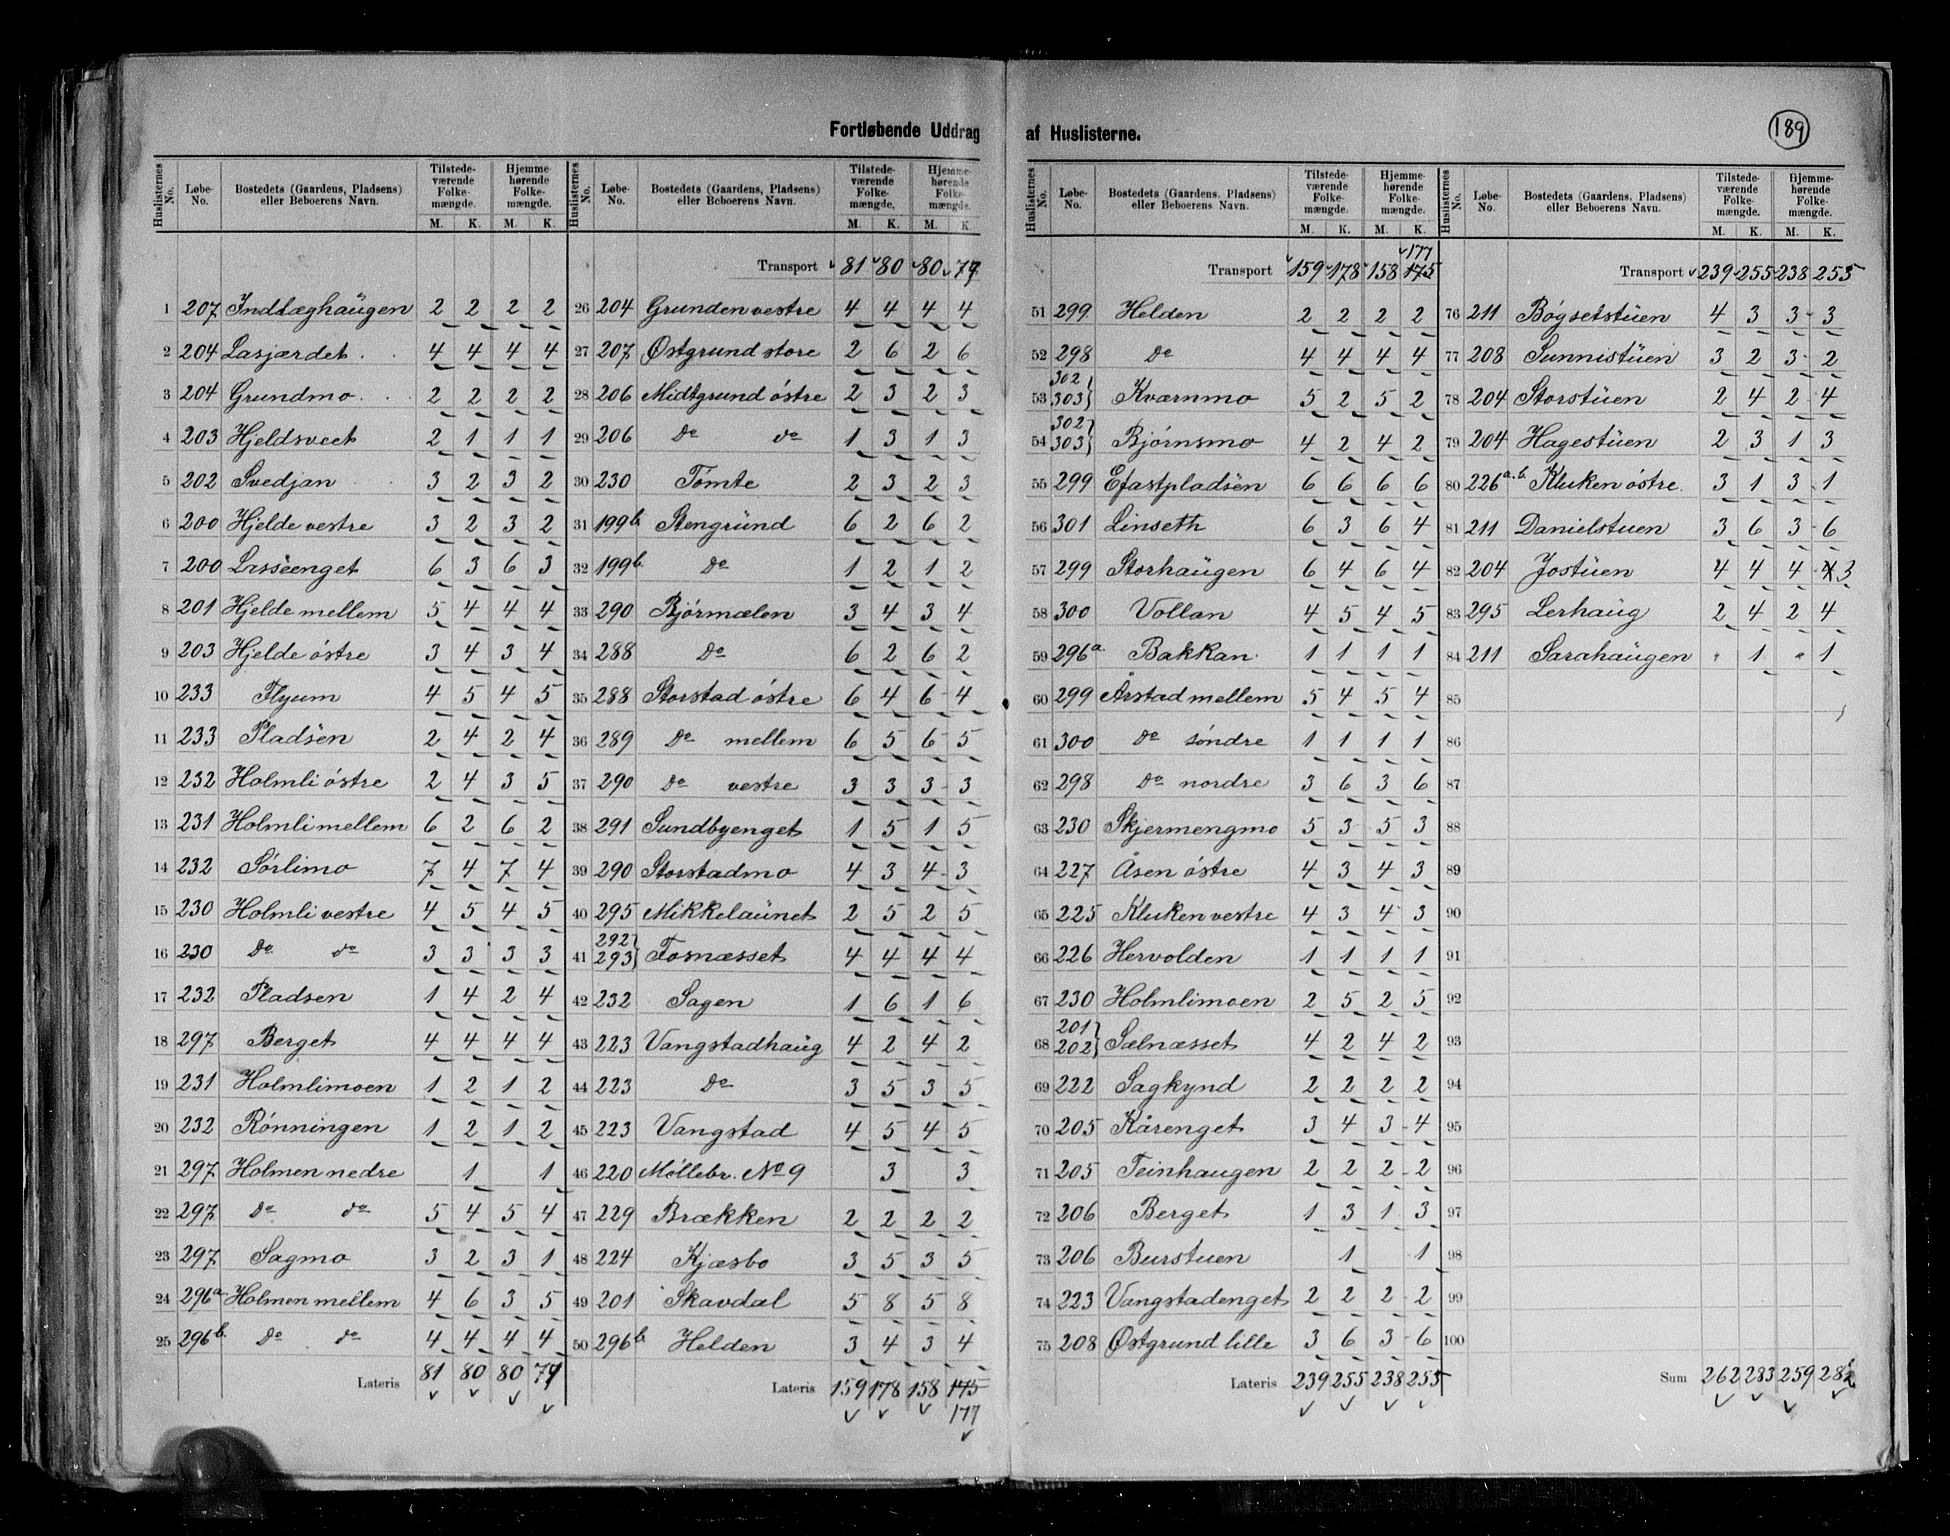 Fortløbende Uddrag af Huslisterne.
189
Huslisternes No. | Løbe-No. | Bostedets (Gaardens, Pladsen) eller Beboerens Navn. | Tilstedeværende Folkemængde. M. K. | Hjemmehørende Folkemængde. M. K.
1 207 Indlæghaugen 2 2 2 2
2 204 Lasjærdet 4 4 4 4
3 204 Grundmo 2 2 2 2
4 203 Hjeldsveet 2 1 1 1
5 202 Svedjan 3 2 3 2
6 200 Hjelde vestre 3 2 3 2
7 200 Lasseenget 6 3 6 3
8 201 Hjelde mellem 5 4 4 4
9 203 Hjelde østre 3 4 3 4
10 233 Flyum 4 5 4 5
11 233 Pladsen 2 4 2 4
12 232 Holmli østre 2 4 3 5
13 231 Holmli mellem 6 2 6 2
14 232 Sørlimo 7 4 7 4
15 230 Holmli vestre 4 5 4 5
16 230 do do 3 3 3 3
17 232 Pladsen 1 4 2 4
18 297 Berget 4 4 4 4
19 231 Holmlimoen 1 2 1 2
20 232 Rønningen 1 2 1 2
21 297 Holmen nedre 1 1
22 297 do do 5 4 5 4
23 297 Sagmo 3 2 3 1
24 296a Holmen mellem 4 6 3 5
25 296b. do do 4 4 4 4
Lateris 81 80 80 79
Huslisternes No. | Løbe-No. | Bostedets (Gaardens, Pladsen) eller Beboerens Navn. | Tilstedeværende Folkemængde. M. K. | Hjemmehørende Folkemængde. M. K.
Transport 81 80 80 79
26 204 Grunden vestre 4 4 4 4
27 207 Østgrund store 2 6 2 6
28 206 Midtgrund østre 2 3 2 3
29 206 do do 1 3 1 3
30 230 Tømte 2 3 2 3
31 199b Stengrund 6 2 6 2
32 199b. do 1 2 1 2
33 290 Bjørmælen 3 4 3 4
34 288 do 6 2 6 2
35 288 Storstad østre 6 4 6 4
36 289 do mellem 6 5 6 5
37 290 do vestre 3 3 3 3
38 291 Sundbyenget 1 5 1 5
39 290 Storstadmo 4 3 4 3
40 295 Mikkelaunet 2 5 2 5
41 292 293 Fosnæsset 4 4 4 4
42 232 Sagen 1 6 1 6
43 223 Vangstadhaug 4 2 4 2
44 223 do 3 5 3 5
45 223 Vangstad 4 5 4 5
46 220 Møllebr. No 9 3 3
47 229 Brækken 2 2 2 2
48 224 Kjæsbo 3 5 3 5
49 201 Skavdal 5 8 5 8
50 296b Helden 3 4 3 4
Lateris 159 178 158 175
177
Huslisternes No. | Løbe-No. | Bostedets (Gaardens, Pladsen) eller Beboerens Navn. | Tilstedeværende Folkemængde. M. K. | Hjemmehørende Folkemængde. M. K.
177
Transport 159 178 158 175
51 299 Helden 2 2 2 2
52 298 do 4 4 4 4
53 302 303 Kværnmo 5 2 5 2
54 302 303 Bjørnsmo 4 2 4 2
55 299 Efastpladsen 6 6 6 6
56 301 Linseth 6 3 6 4
57 299 Storhaugen 6 4 6 4
58 300 Vollan 4 5 4 5
59 296a Bakkan 1 1 1 1
60 299 Årstad mellem 5 4 5 4
61 300 do søndre 1 1 1 1
62 298 do nordre 3 6 3 6
63 230 Skjermengmo 5 3 5 3
64 227 Åsen østre 4 3 4 3
65 225 Kluken vestre 4 3 4 3
66 226 Hervolden 1 1 1 1
67 230 Holmlimoen 2 5 2 5
68 201 202 Sælnæsset 4 2 4 2
69 222 Sagkynd 2 2 2 2
70 205 Kårenget 3 4 3 4
71 205 Teinhaugen 2 2 2 2
72 206 Berget 1 3 1 3
73 206 Burstuen 1 1
74 223 Vangstadenget 2 2 2 2
75 208 Østgrund lille 3 6 3 6
Lateris 239 255 238 255
Huslisternes No. | Løbe-No. | Bostedets (Gaardens, Pladsen) eller Beboerens Navn. | Tilstedeværende Folkemængde. M. K. | Hjemmehørende Folkemængde. M. K.
Transport 239 255 238 255
76 211 Bøgsetstuen 4 3 3 3
77 208 Sunnistuen 3 2 3 2
78 204 Storstuen 2 4 2 4
79 204 Hagestuen 2 3 1 3
80 226a.b. Kluken østre 3 1 3 1
81 211 Danielstuen 3 6 3 6
82 204 Jostuen 4 4 4 4 3
83 295 Lerhaug 2 4 2 4
84 211 Sarahaugen " 1 " 1
85
86
87
88
89
90
91
92
93
94
95
96
97
98
99
100
Sum 262 283 259 282